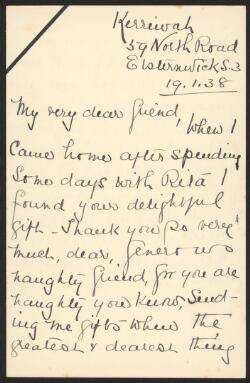 Kerriwah
59 North Road
Elsternwick S.3
19.1.38
My very dear friend, When I
came home after spending
some days with Rita I
found your delightful
gift - Thank you so very
much, dear, generous
naughty friend, for you are
naughty you know, Send-
ing me gifts when the
greatest & dearest thing